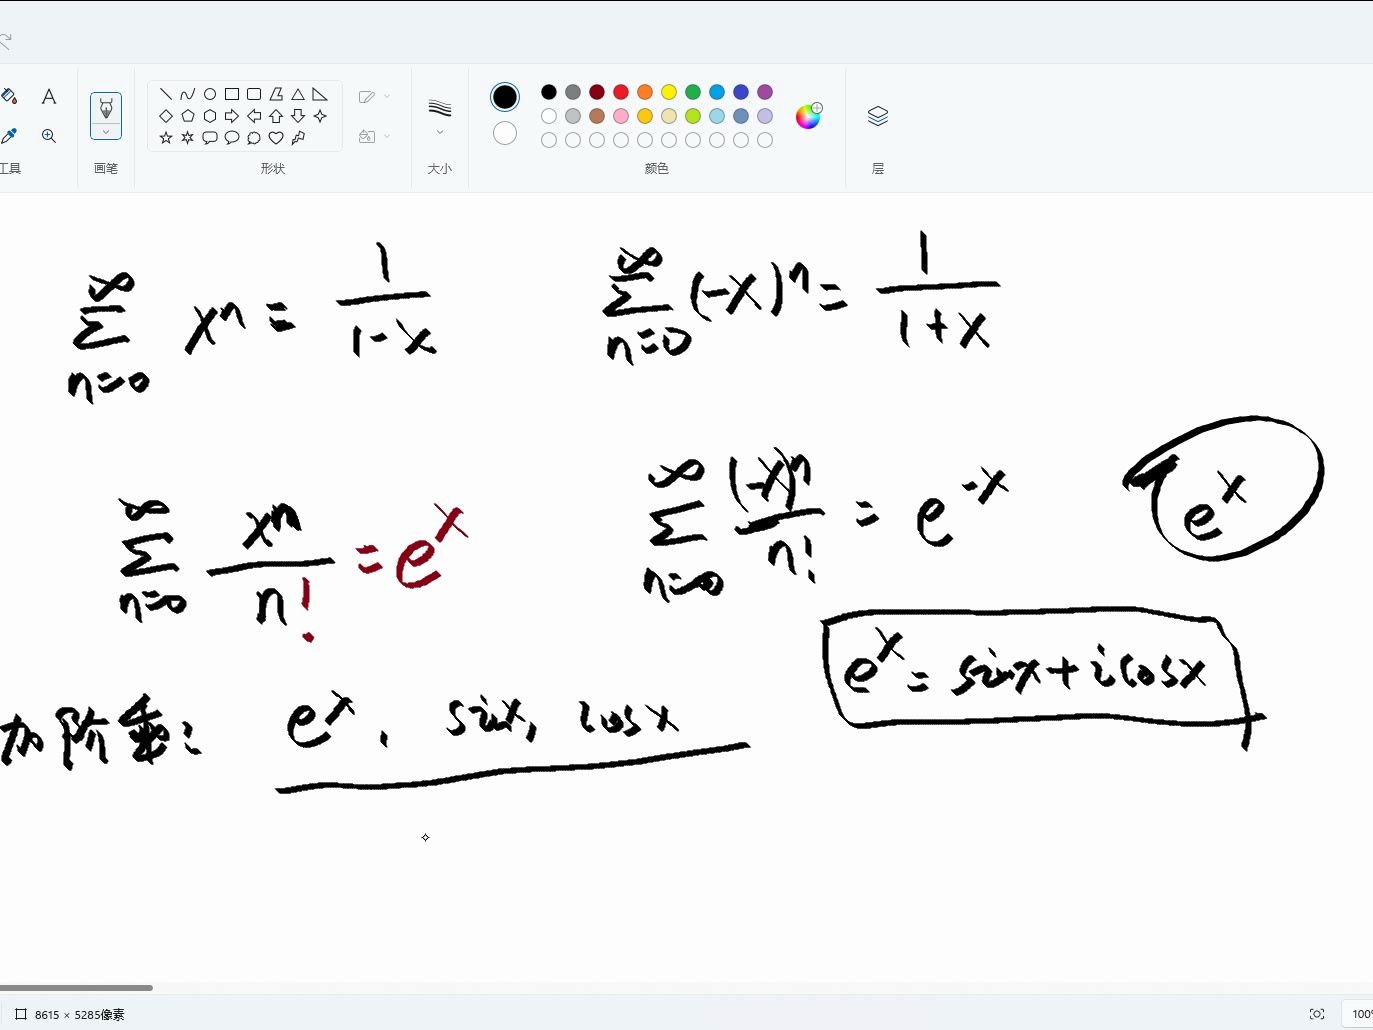 A
工具
画笔
形状
大小
颜色
层
∑_{n=0}^{∞} xⁿ = 1/(1-x)
∑_{n=0}^{∞} (-x)ⁿ = 1/(1+x)
∑_{n=0}^{∞} xⁿ/n! = eˣ
∑_{n=0}^{∞} (-x)ⁿ/n! = e⁻ˣ
eˣ
eˣ = sinx + icosx
加阶乘: eˣ, sinx, cosx
8615 × 5285像素
100%